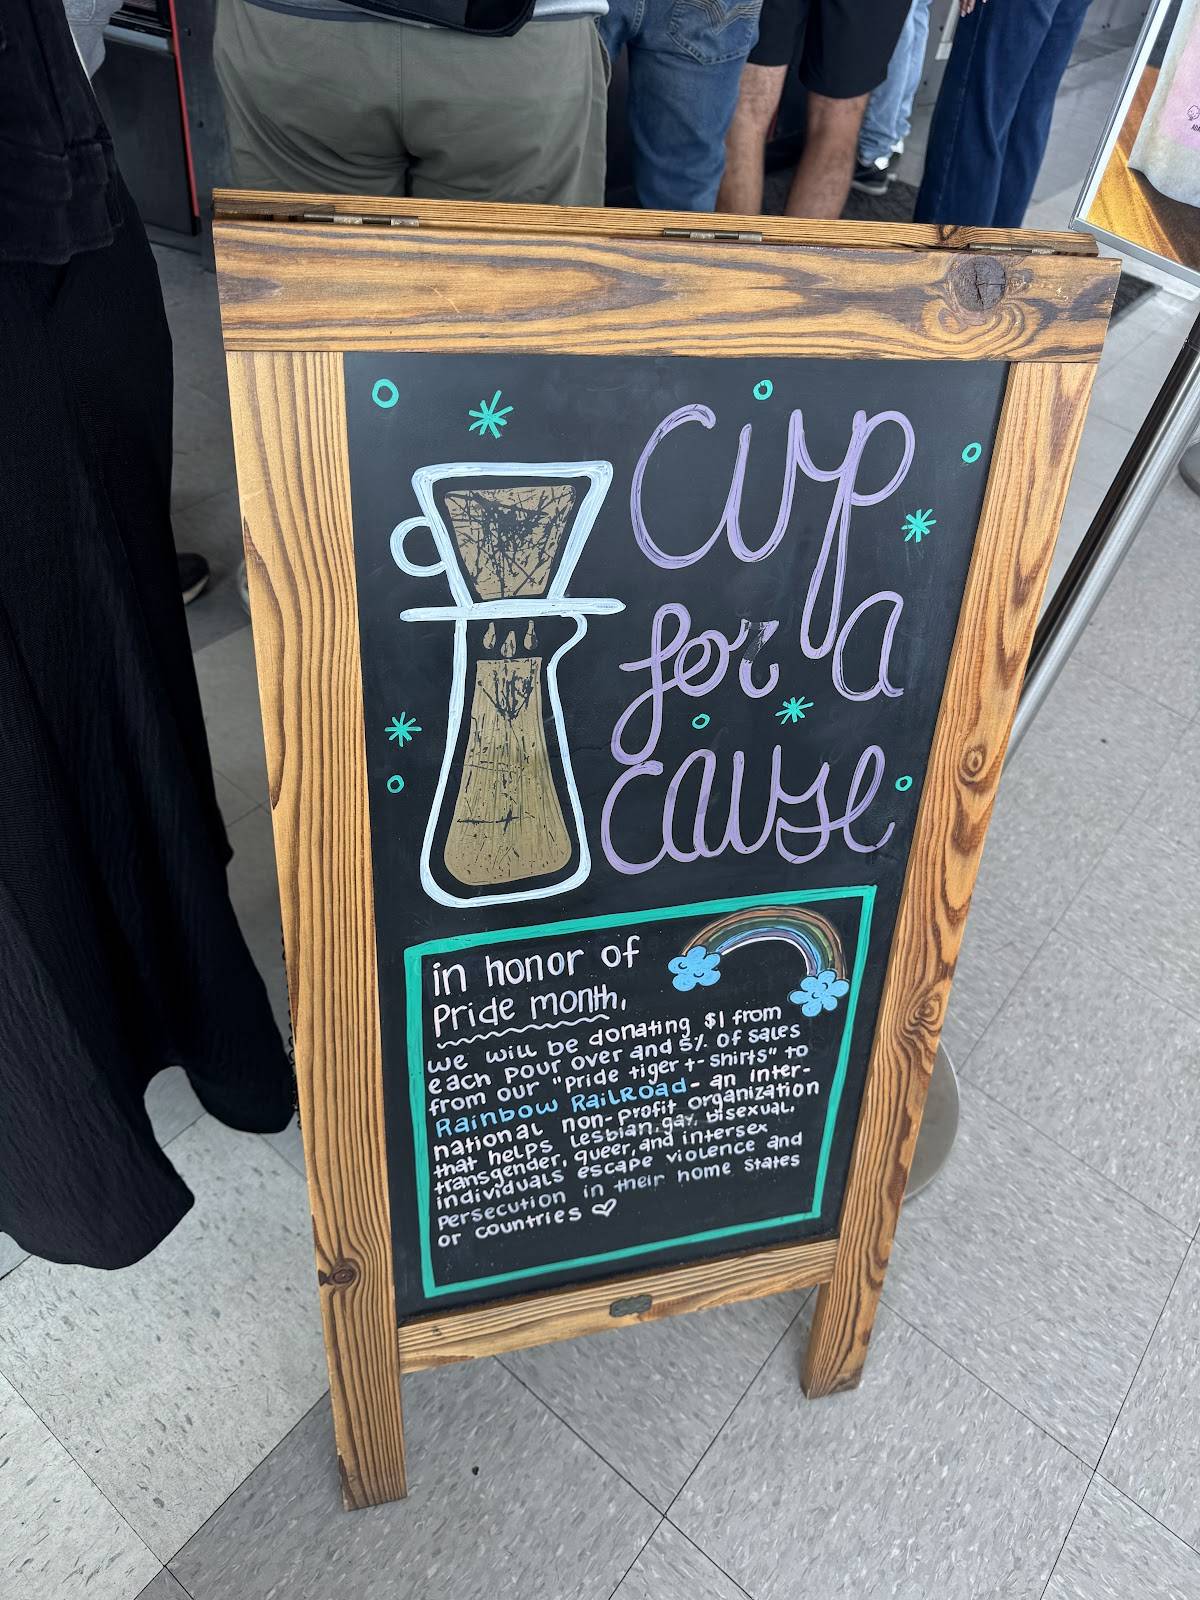 Cup
for a
cause
in honor of
Pride month,
we will be donating $1 from
each pour over and 5% of sales
from our "Pride tiger t-shirts" to
Rainbow RailRoad - an inter-
national non-profit organization
that helps lesbian, gay, bisexual,
transgender, queer, and intersex
individuals escape violence and
persecution in their home states
or countries ♡